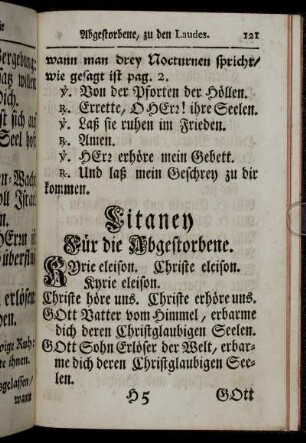 Abgestorbene, zu den Laudes. 121
wann man drey Nocturnen spricht/
wie gesagt ist pag. 2.
℣. Von der Pforten der Höllen.
℟. Errette, O HErr! ihre Seelen.
℣. Laß sie ruhen im Frieden.
℟. Amen.
℣. HErr erhöre mein Gebett.
℟. Und laß mein Geschrey zu dir
kommen.
Litaney
Für die Abgestorbene.
KYrie eleison. Christe eleison.
Kyrie eleison.
Christe höre uns. Christe erhöre uns.
GOtt Vatter vom Himmel, erbarme
dich deren Christglaubigen Seelen.
GOtt Sohn Erlöser der Welt, erbar-
me dich deren Christglaubigen See-
len.
H5 GOtt